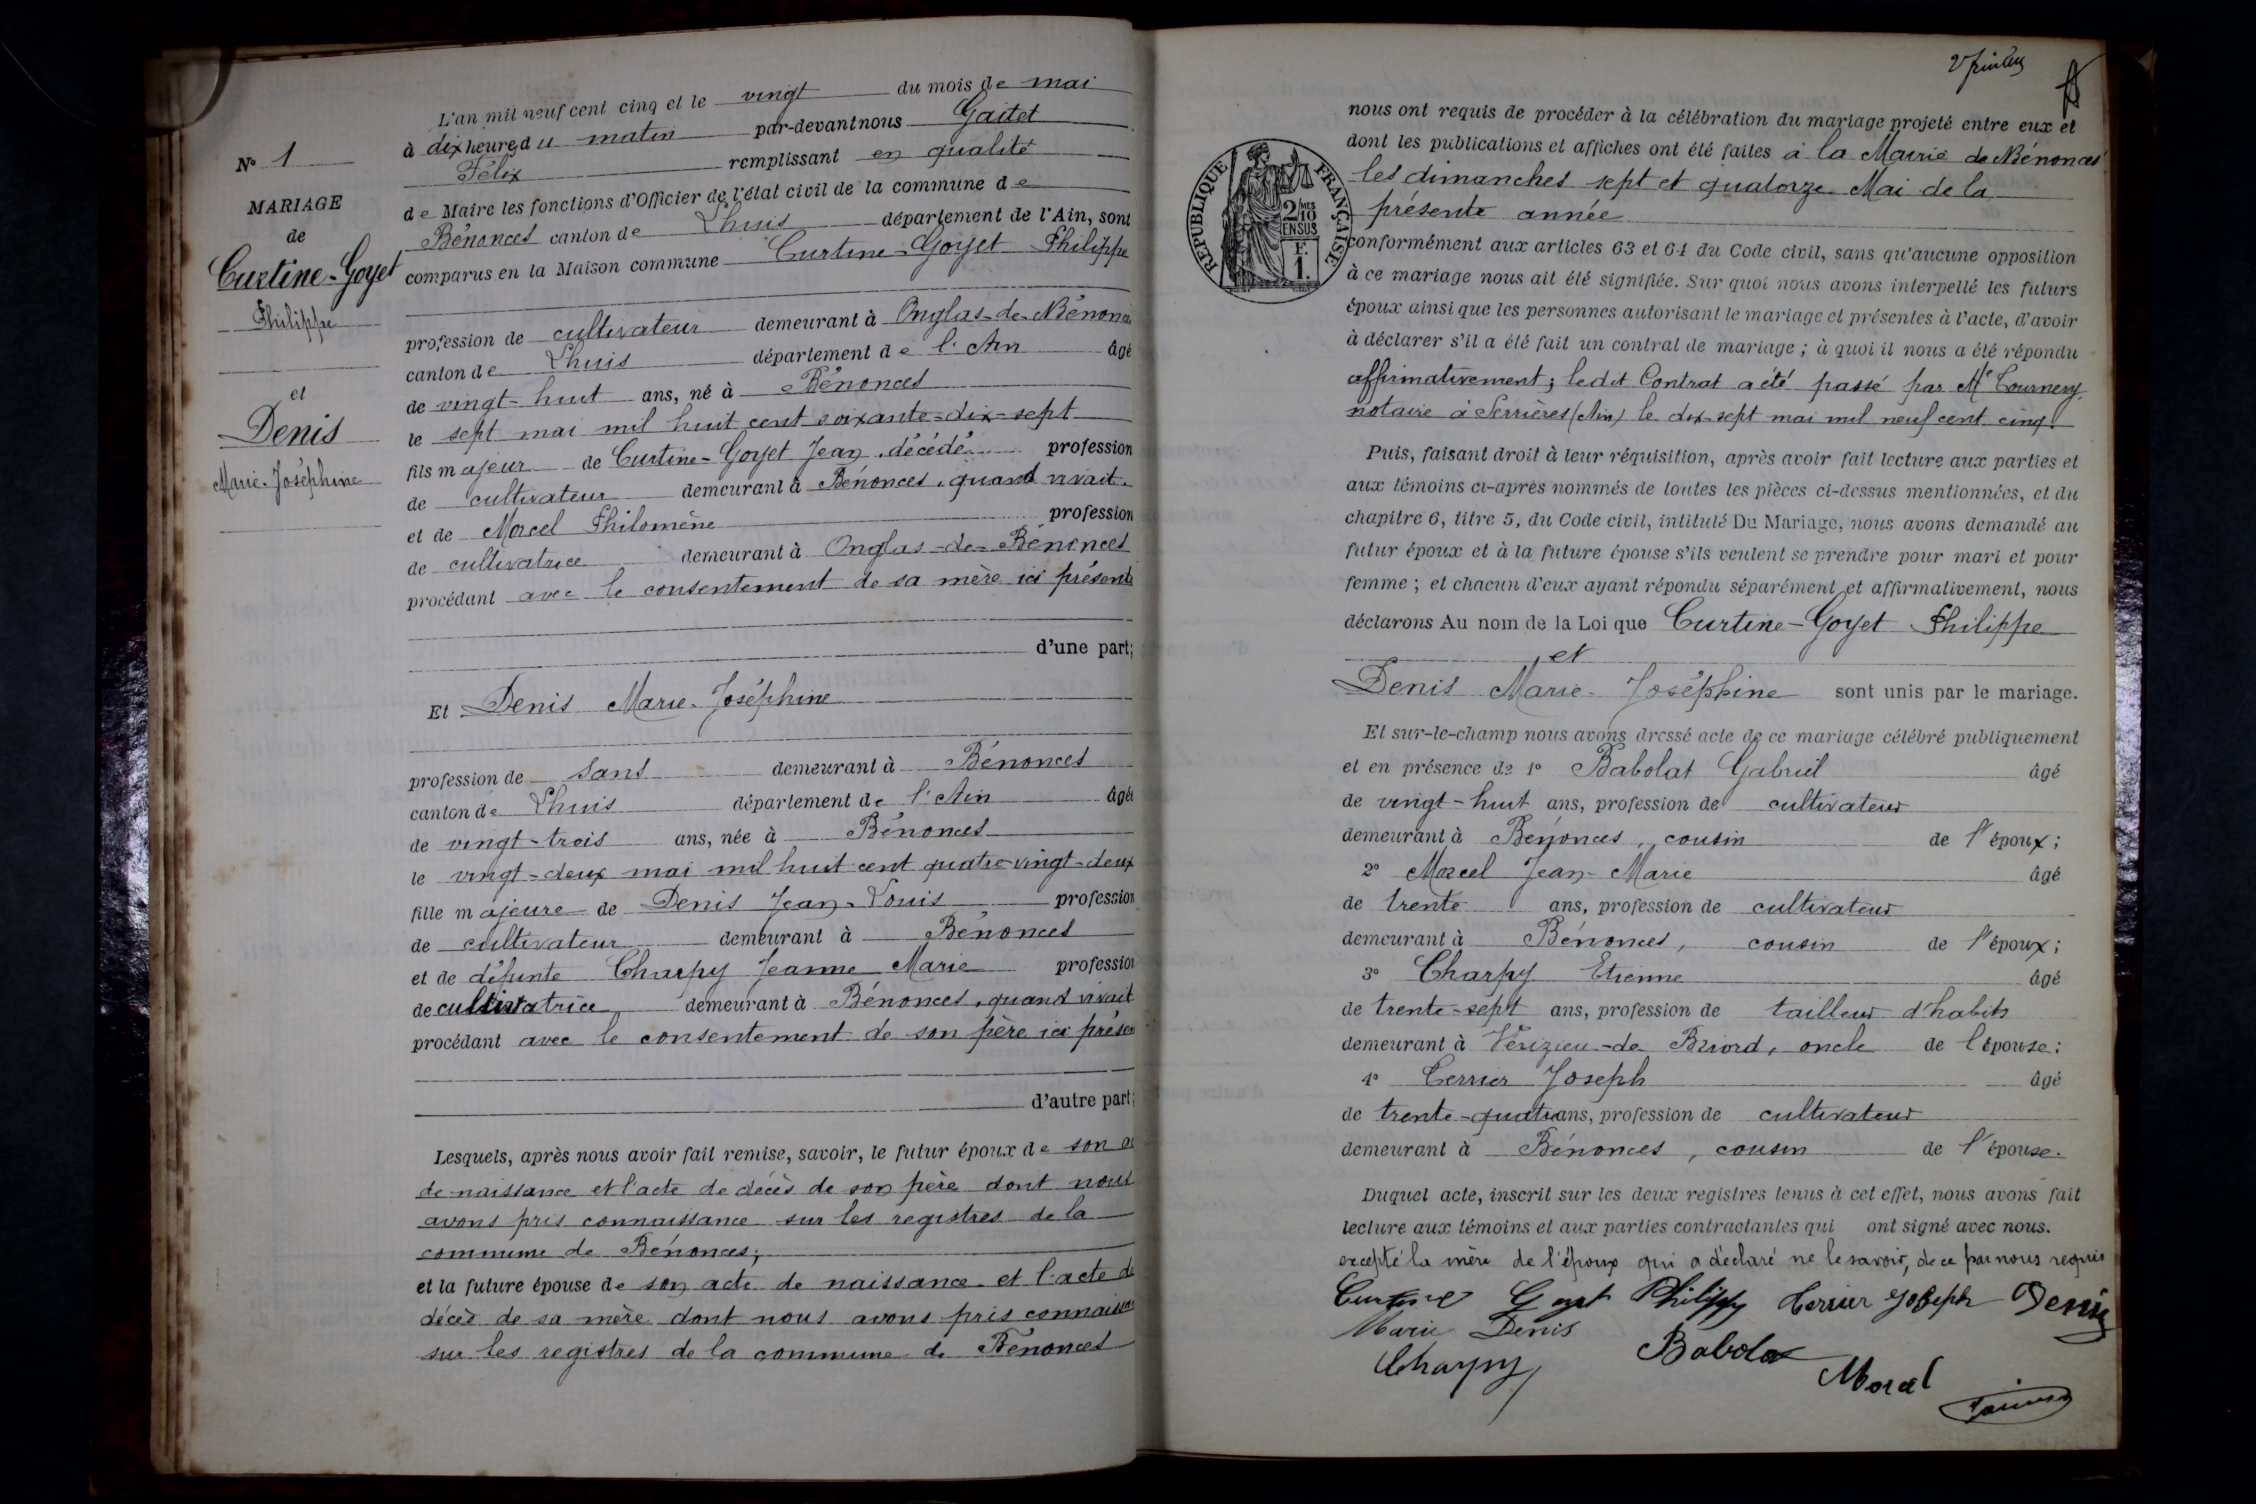 N° 1
MARIAGE
de
Curtine-Goyet
Philippe
et
Denis
Marie-Joséphine
L'an mil neuf cent cinq et le vingt du mois de mai
à dix heures du matin par-devant nous Gaitet
Félix remplissant en qualité
de Maire les fonctions d'Officier de l'état civil de la commune de
Bénonces canton de Lhuis département de l'Ain, sont
comparus en la Maison commune Curtine-Goyet Philippe
profession de cultivateur demeurant à Onglas-de-Bénonces
canton de Lhuis département de l'Ain âgé
de vingt-huit ans, né à Bénonces
le sept mai mil huit cent soixante-dix-sept
fils majeur de Curtine-Goyet Jean, décédé profession
de cultivateur demeurant à Bénonces, quand vivait.
et de Morcel Philomène profession
de cultivatrice demeurant à Onglas-de-Bénonces
procédant avec le consentement de sa mère ici présente
d'une part;
Et Denis Marie-Joséphine
profession de sans demeurant à Bénonces
canton de Lhuis département de l'Ain âgée
de vingt-trois ans, née à Bénonces
le vingt-deux mai mil huit cent quatre-vingt-deux
fille majeure de Denis Jean-Louis profession
de cultivateur demeurant à Bénonces
et de défunte Charpy Jeanne Marie profession
de cultivatrice demeurant à Bénonces, quand vivait
procédant avec le consentement de son père ici présen
d'autre part;
Lesquels, après nous avoir fait remise, savoir, le futur époux de son a
de naissance et l'acte de décès de son père dont nous
avons pris connaissance sur les registres de la
commune de Bénonces;
et la future épouse de son acte de naissance et l'acte de
décès de sa mère dont nous avons pris connaissan
sur les registres de la commune de Bénonces
RÉPUBLIQUE FRANÇAISE
2/10 MES
EN SUS
F.
1.
nous ont requis de procéder à la célébration du mariage projeté entre eux et
dont les publications et affiches ont été faites à la Mairie de Bénonces
les dimanches sept et quatorze Mai de la
présente année
conformément aux articles 63 et 64 du Code civil, sans qu'aucune opposition
à ce mariage nous ait été signifiée. Sur quoi nous avons interpellé les futurs
époux ainsi que les personnes autorisant le mariage et présentes à l'acte, d'avoir
à déclarer s'il a été fait un contrat de mariage; à quoi il nous a été répondu
affirmativement; ledit Contrat a été passé par Me Tournery,
notaire à Serrières (Ain) le dix-sept mai mil neuf cent cinq.
Puis, faisant droit à leur réquisition, après avoir fait lecture aux parties et
aux témoins ci-après nommés de toutes les pièces ci-dessus mentionnées, et du
chapitre 6, titre 5, du Code civil, intitulé Du Mariage, nous avons demandé au
futur époux et à la future épouse s'ils veulent se prendre pour mari et pour
femme; et chacun d'eux ayant répondu séparément et affirmativement, nous
déclarons Au nom de la Loi que Curtine-Goyet Philippe
et
Denis Marie-Joséphine sont unis par le mariage.
Et sur-le-champ nous avons dressé acte de ce mariage célébré publiquement
et en présence de 1° Babolat Gabriel âgé
de vingt-huit ans, profession de cultivateur
demeurant à Bénonces, cousin de l'époux;
2° Morcel Jean-Marie âgé
de trente ans, profession de cultivateur
demeurant à Bénonces, cousin de l'époux;
3° Charpy Etienne âgé
de trente-sept ans, profession de tailleur d'habits
demeurant à Vérizieu-de Briord, oncle de l'épouse;
4° Cerrier Joseph âgé
de trente-quatre ans, profession de cultivateur
demeurant à Bénonces, cousin de l'épouse.
Duquel acte, inscrit sur les deux registres tenus à cet effet, nous avons fait
lecture aux témoins et aux parties contractantes qui ont signé avec nous.
excepté la mère de l'époux qui a déclaré ne le savoir, de ce par nous requis
Curtine Goyet Philippe Cerrier Joseph Denis
Marie Denis
Charpy Babolat Morcel